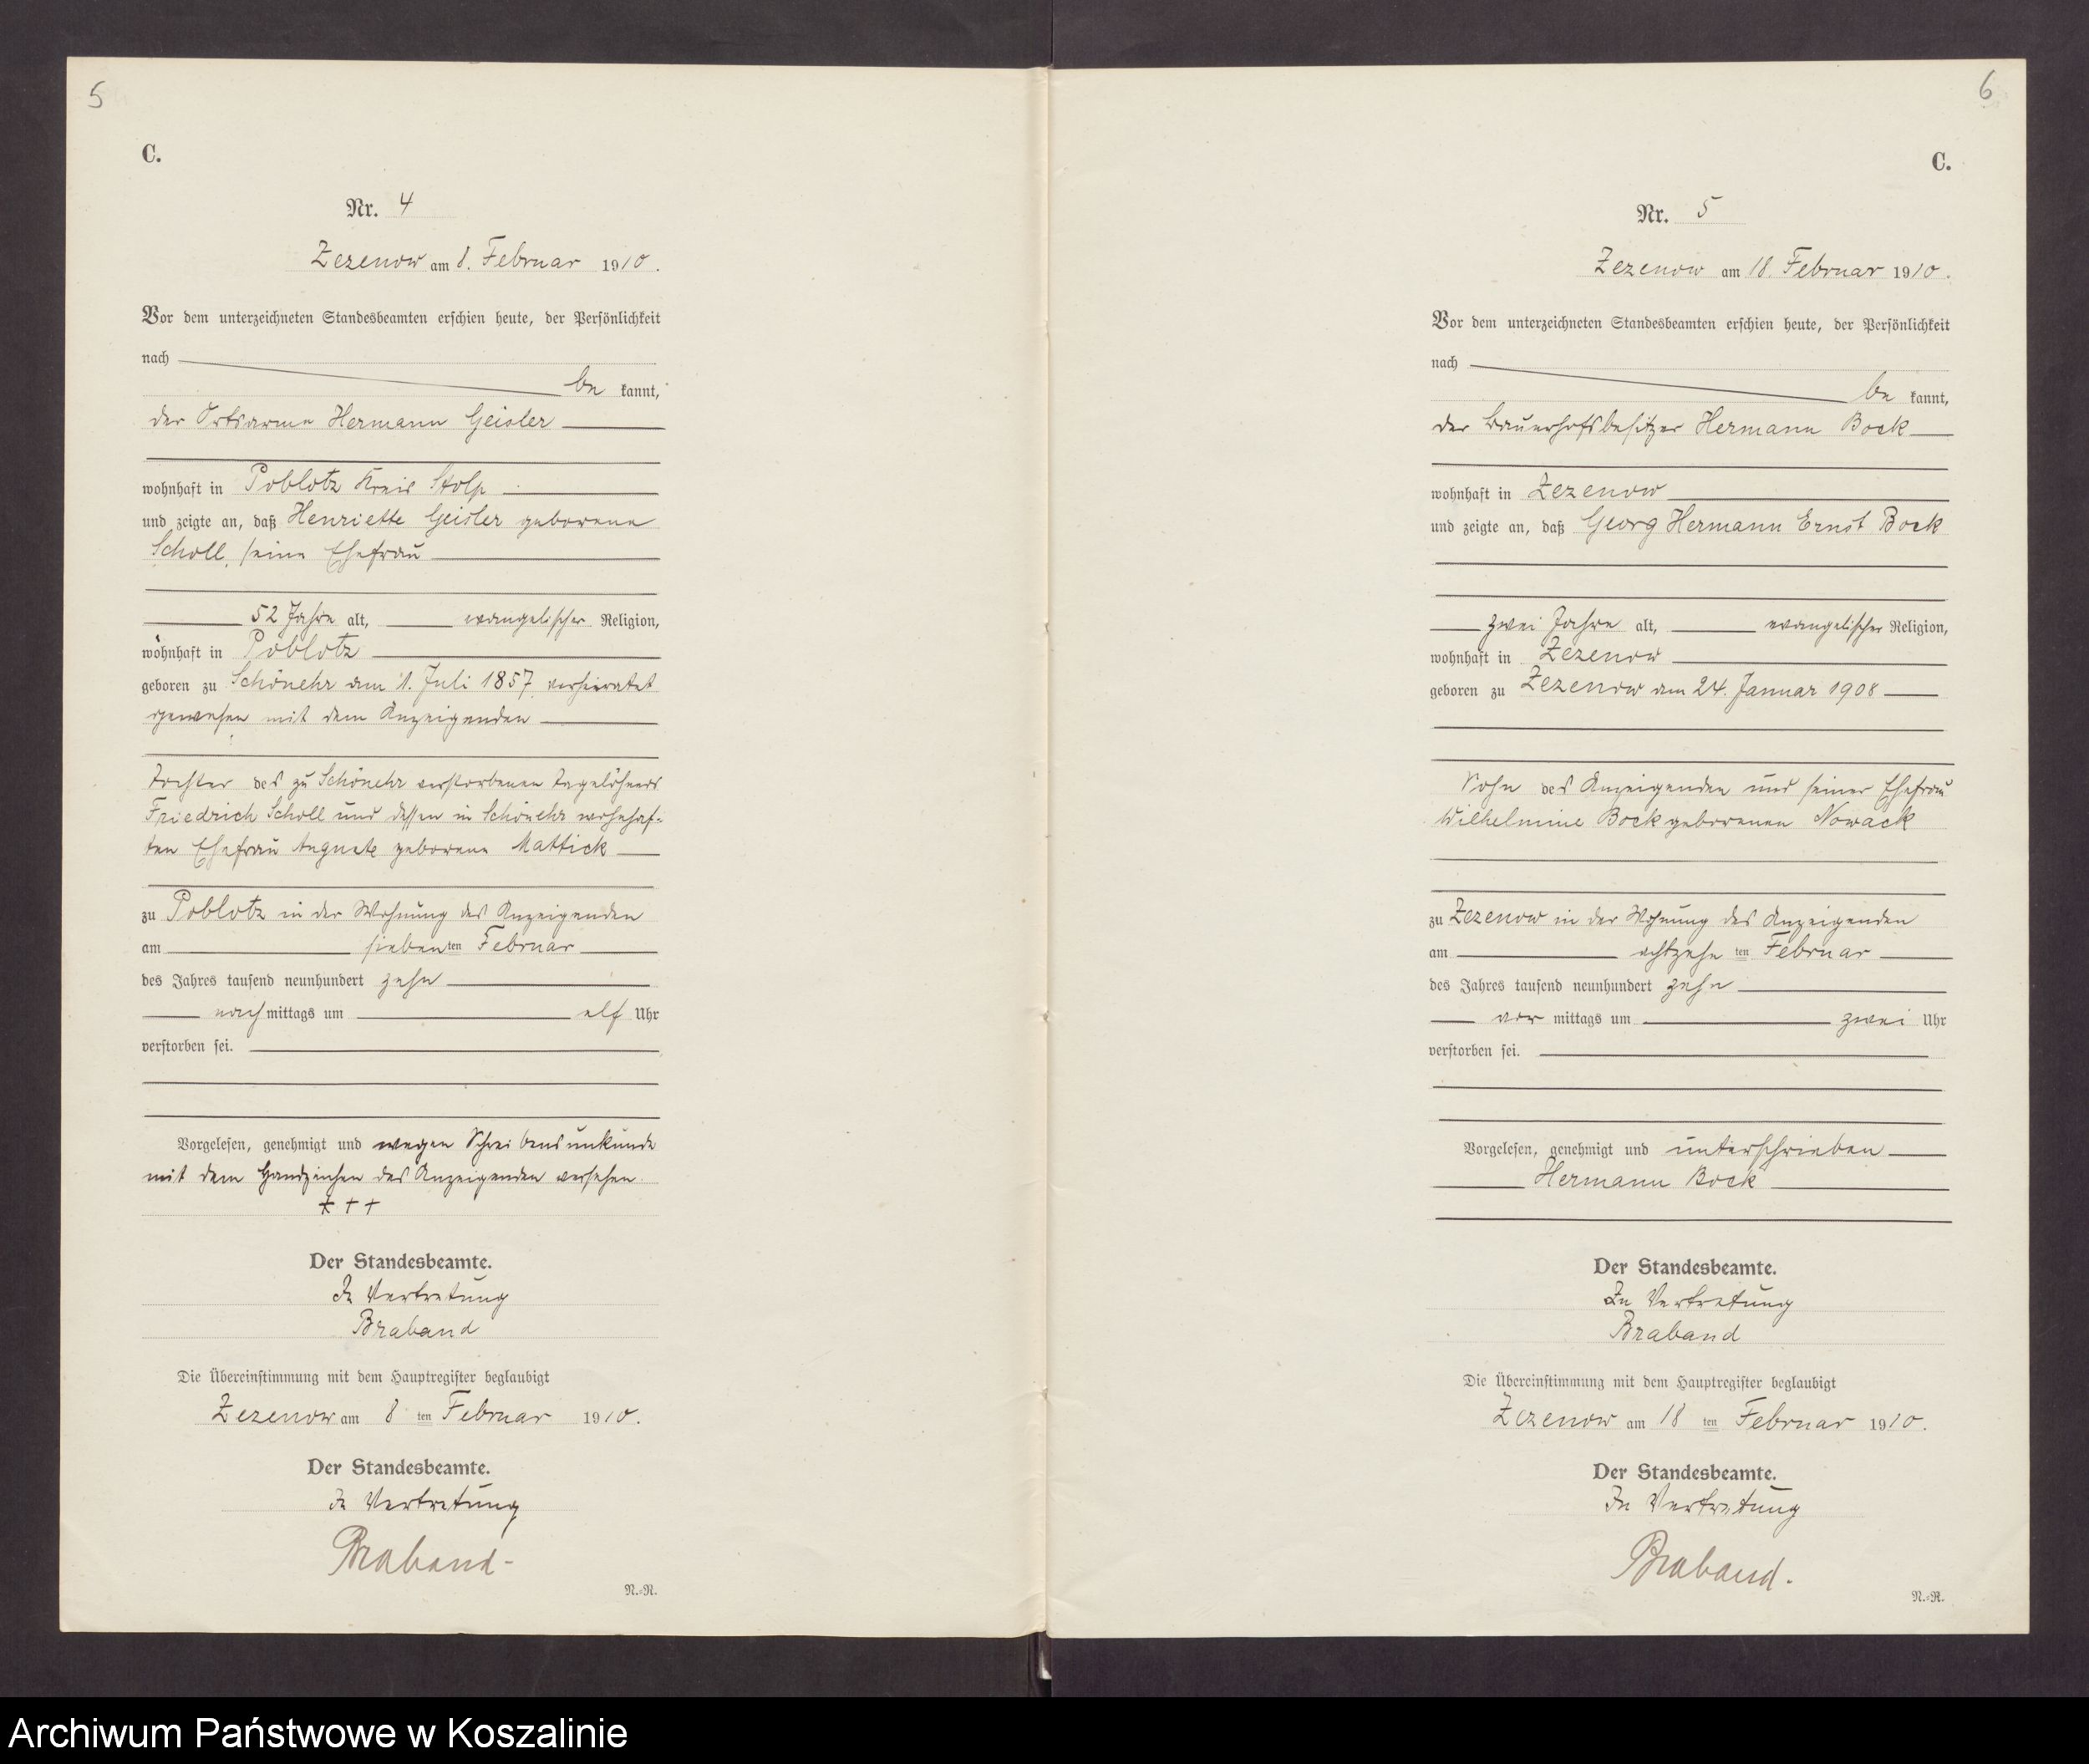 5
C.
Nr. 4
Zezenow am 8. Februar 1910.
Vor dem unterzeichneten Standesbeamten erschien heute, der Persönlichkeit
nach
be kannt,
der Ortsarme Hermann Geisler
wohnhaft in Poblotz Kreis Stolp
und zeigte an, daß Henriette Geisler geborene
Scholl, seine Ehefrau
52 Jahre alt, evangelischer Religion,
wohnhaft in Poblotz
geboren zu Schönehr am 1. Juli 1857, verheiratet
gewesen mit dem Anzeigenden
Tochter des zu Schönehr verstorbenen Tagelöhners
Friedrich Scholl und dessen in Schönehr wohnhaf-
ten Ehefrau Auguste geborene Mattick
zu Poblotz in der Wohnung des Anzeigenden
am siebenten Februar
des Jahres tausend neunhundert zehn
nachmittags um elf Uhr
verstorben sei.
Vorgelesen, genehmigt und wegen Schreibensunkunde
mit dem Handzeichen des Anzeigenden versehen.
+++
Der Standesbeamte.
In Vertretung
Braband
Die Übereinstimmung mit dem Hauptregister beglaubigt
Zezenow am 8 ten Februar 1910.
Der Standesbeamte.
In Vertretung
Braband
N.-R.
6
C.
Nr. 5
Zezenow am 18. Februar 1910.
Vor dem unterzeichneten Standesbeamten erschien heute, der Persönlichkeit
nach
be kannt,
der Bauerhofsbesitzer Hermann Bock
wohnhaft in Zezenow
und zeigte an, daß Georg Hermann Ernst Bock
zwei Jahre alt, evangelischer Religion,
wohnhaft in Zezenow
geboren zu Zezenow am 24. Januar 1908
Sohn des Anzeigenden und seiner Ehefrau
Wilhelmine Bock geborenen Nowack
zu Zezenow in der Wohnung des Anzeigenden
am achtzehn ten Februar
des Jahres tausend neunhundert zehn
vor mittags um zwei Uhr
verstorben sei.
Vorgelesen, genehmigt und unterschrieben
Hermann Bock
Der Standesbeamte.
In Vertretung
Braband
Die Übereinstimmung mit dem Hauptregister beglaubigt
Zezenow am 18 ten Februar 1910.
Der Standesbeamte.
In Vertretung
Braband.
N.-R.
Archiwum Państwowe w Koszalinie